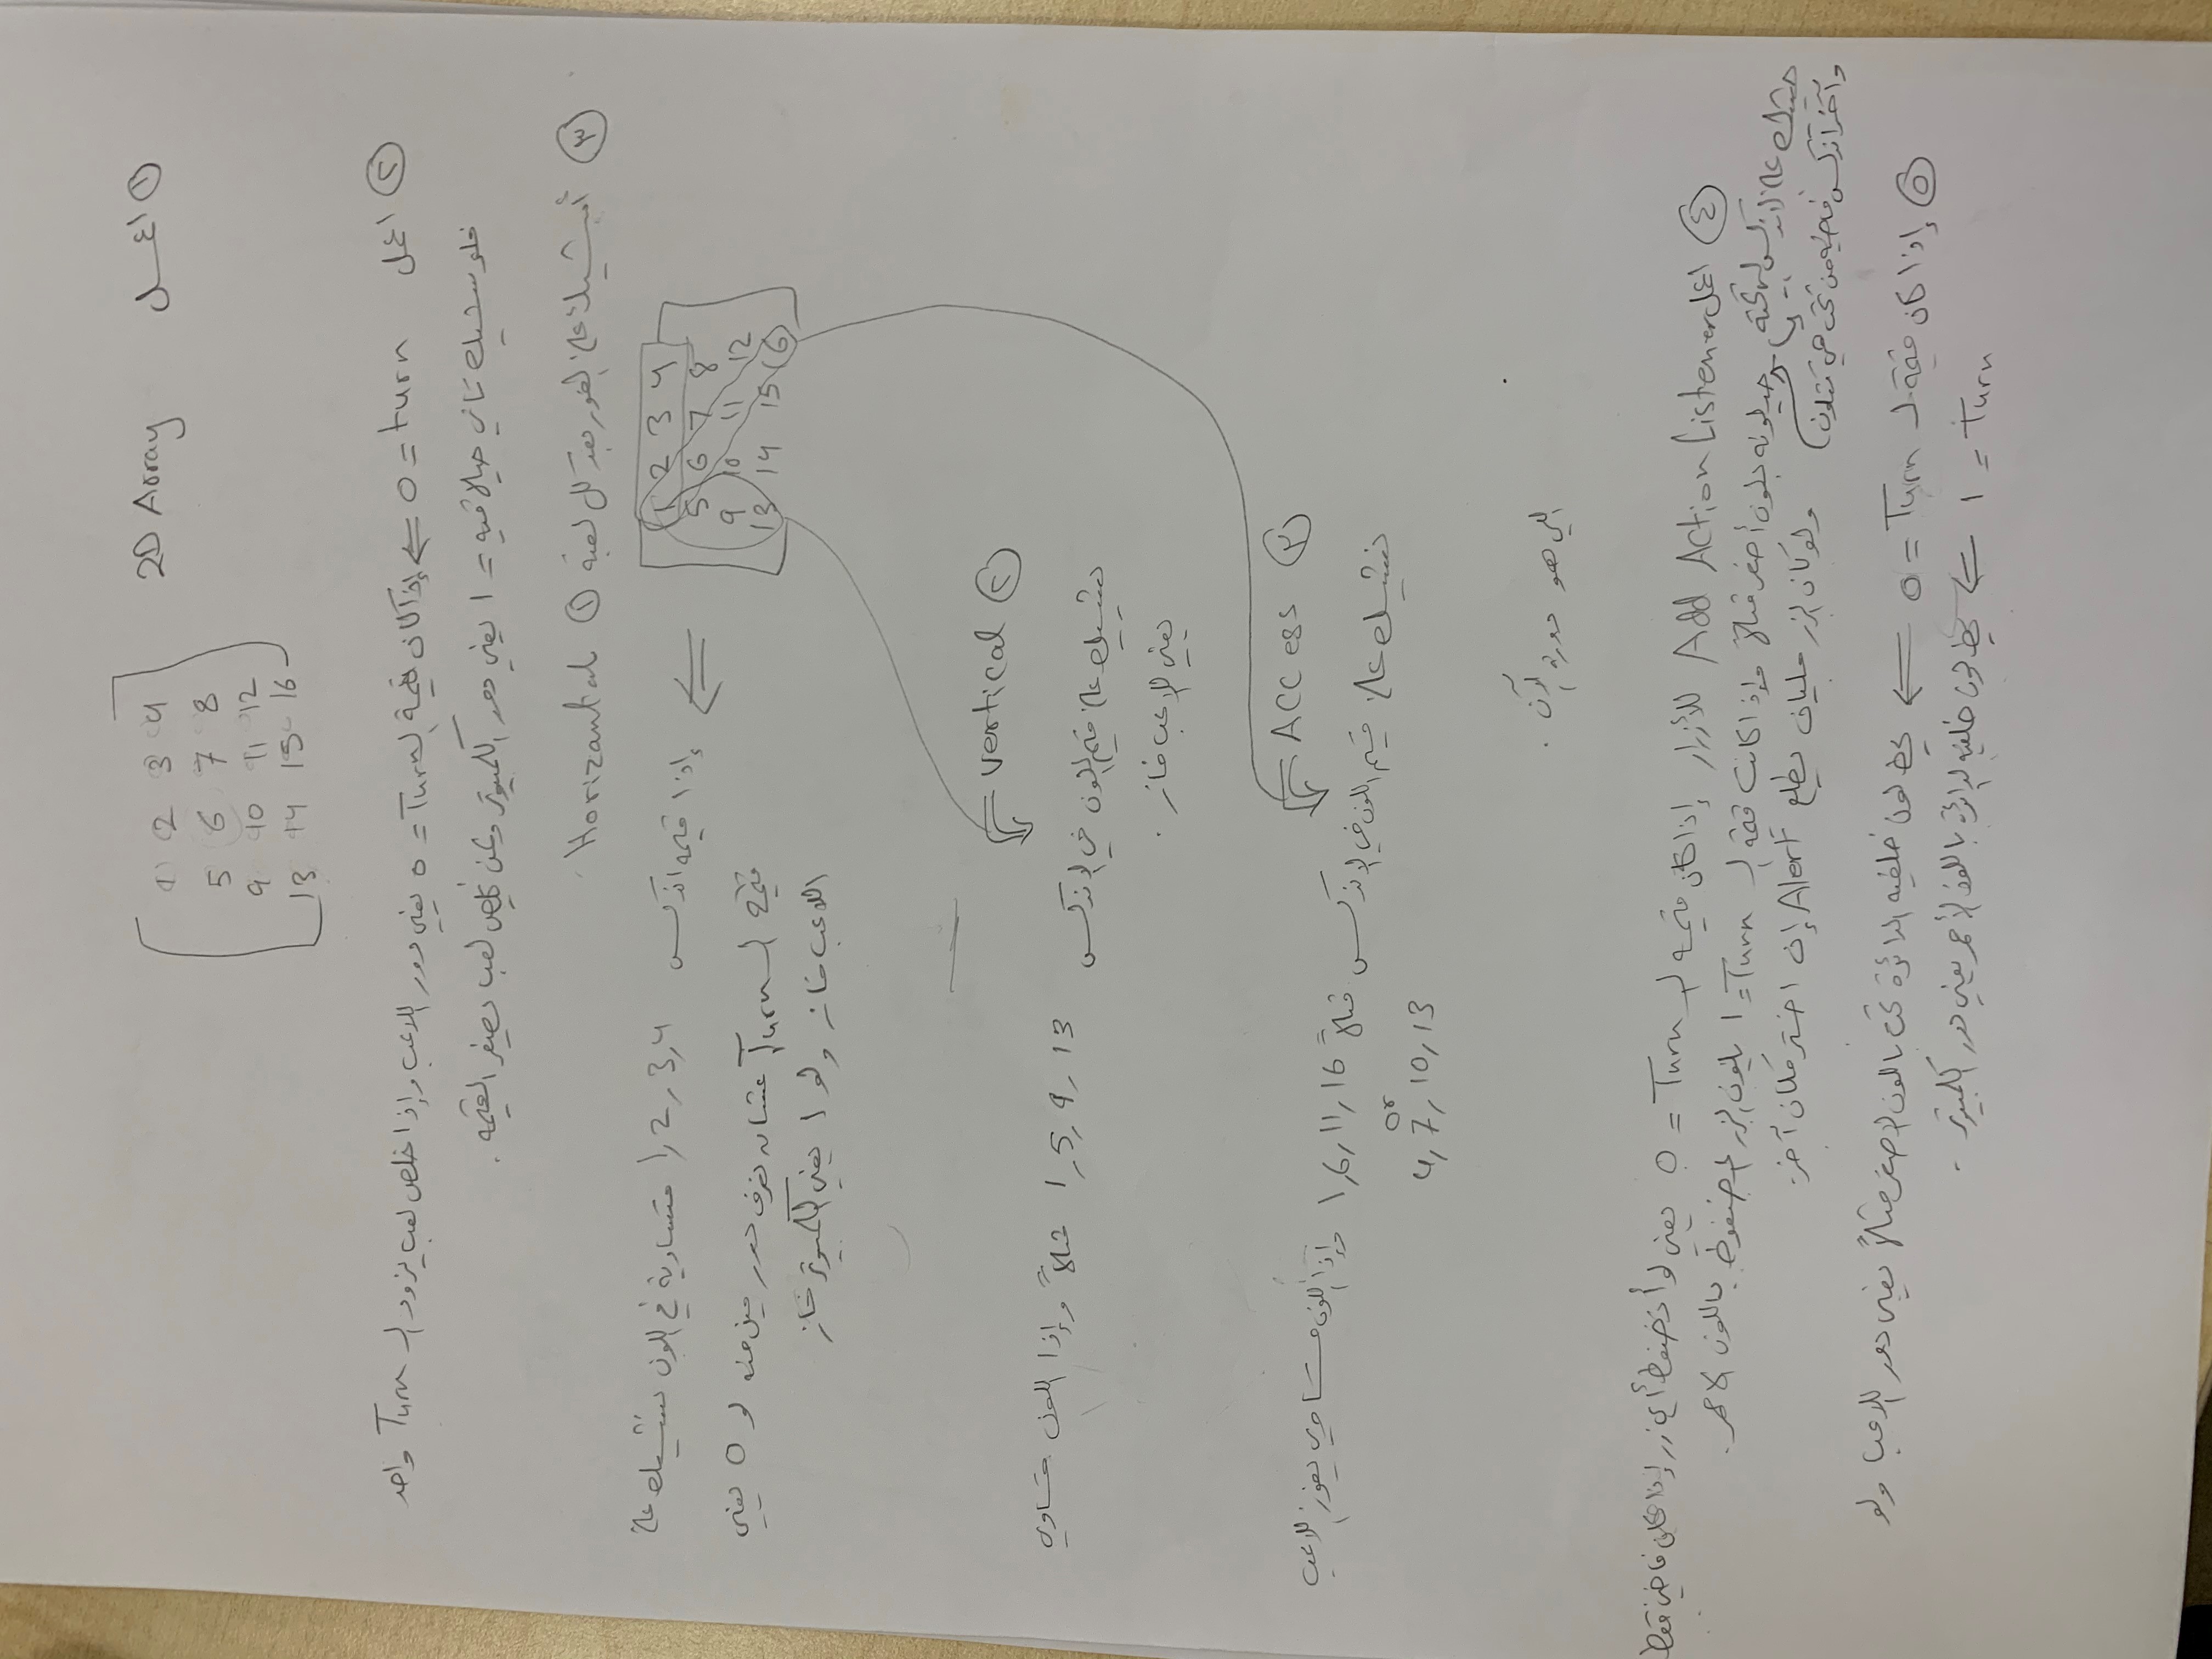 ① اعمل 2D Array
1 2 3 4
5 6 7 8
9 10 11 12
13 14 15 16
② اعمل turn = 0 ⇐ إذا كان قيمة الـ Turn = 0 يعني دور اللاعب وإذا خلص لعب يزود الـ Turn واحد
فلو شيك تاني = 1 يعني دور الكمبيوتر لعب يصفر القيمه .
③ أشيك على الفوز بعد كل لعبة ① Horizantal
1 2 3 4
5 6 7 8
9 10 11 12
13 14 15 16
⇐ إذا قيمه اندكس 1, 2, 3, 4 متساوية في اللون نشيك على
قيمة الـ Turn عشان نعرف دور مين منه لو 0 يعني
اللاعب فاز ولو 1 يعني الكمبيوتر فاز
② vertical
نشيك على قيم اللون في الاندكس 1, 5, 9, 13 مثلاً وإذا اللون متساوي
يعني اللاعب فاز .
③ ACCess
نشيك على قيم اللون في الاندكس مثلاً 1, 6, 11, 16 وإذا اللون متساوي يفوز اللاعب
or
4, 7, 10, 13
اللي هو دوره الآن .
④ اعمل Add Action Listener للأزرار إذا كان قيمه الـ Turn = 0 يعني لو أنضغط أي زر إذا مكان فاضي فقط
حيشيك على الاندكس حيلونه بلون أصفر مثلاً وإذا كانت قيمة الـ Turn = 1 يلون الزر المضغوط باللون الاحمر .
وآخر اندكس فاضيه من تحت هي تتلون) ولو كان الزر مليان يطلع Alert إن اختر مكان آخر .
⑤ إذا كان قيمة الـ Turn = 0 ⇐ يحط لون خلفيه الدائرة تحت باللون الاصفر مثلاً يعني دور اللاعب ولو
Turn = 1 ⇐ يحط لون خلفيه الدائرة باللون الأحمر يعني دور الكمبيوتر .